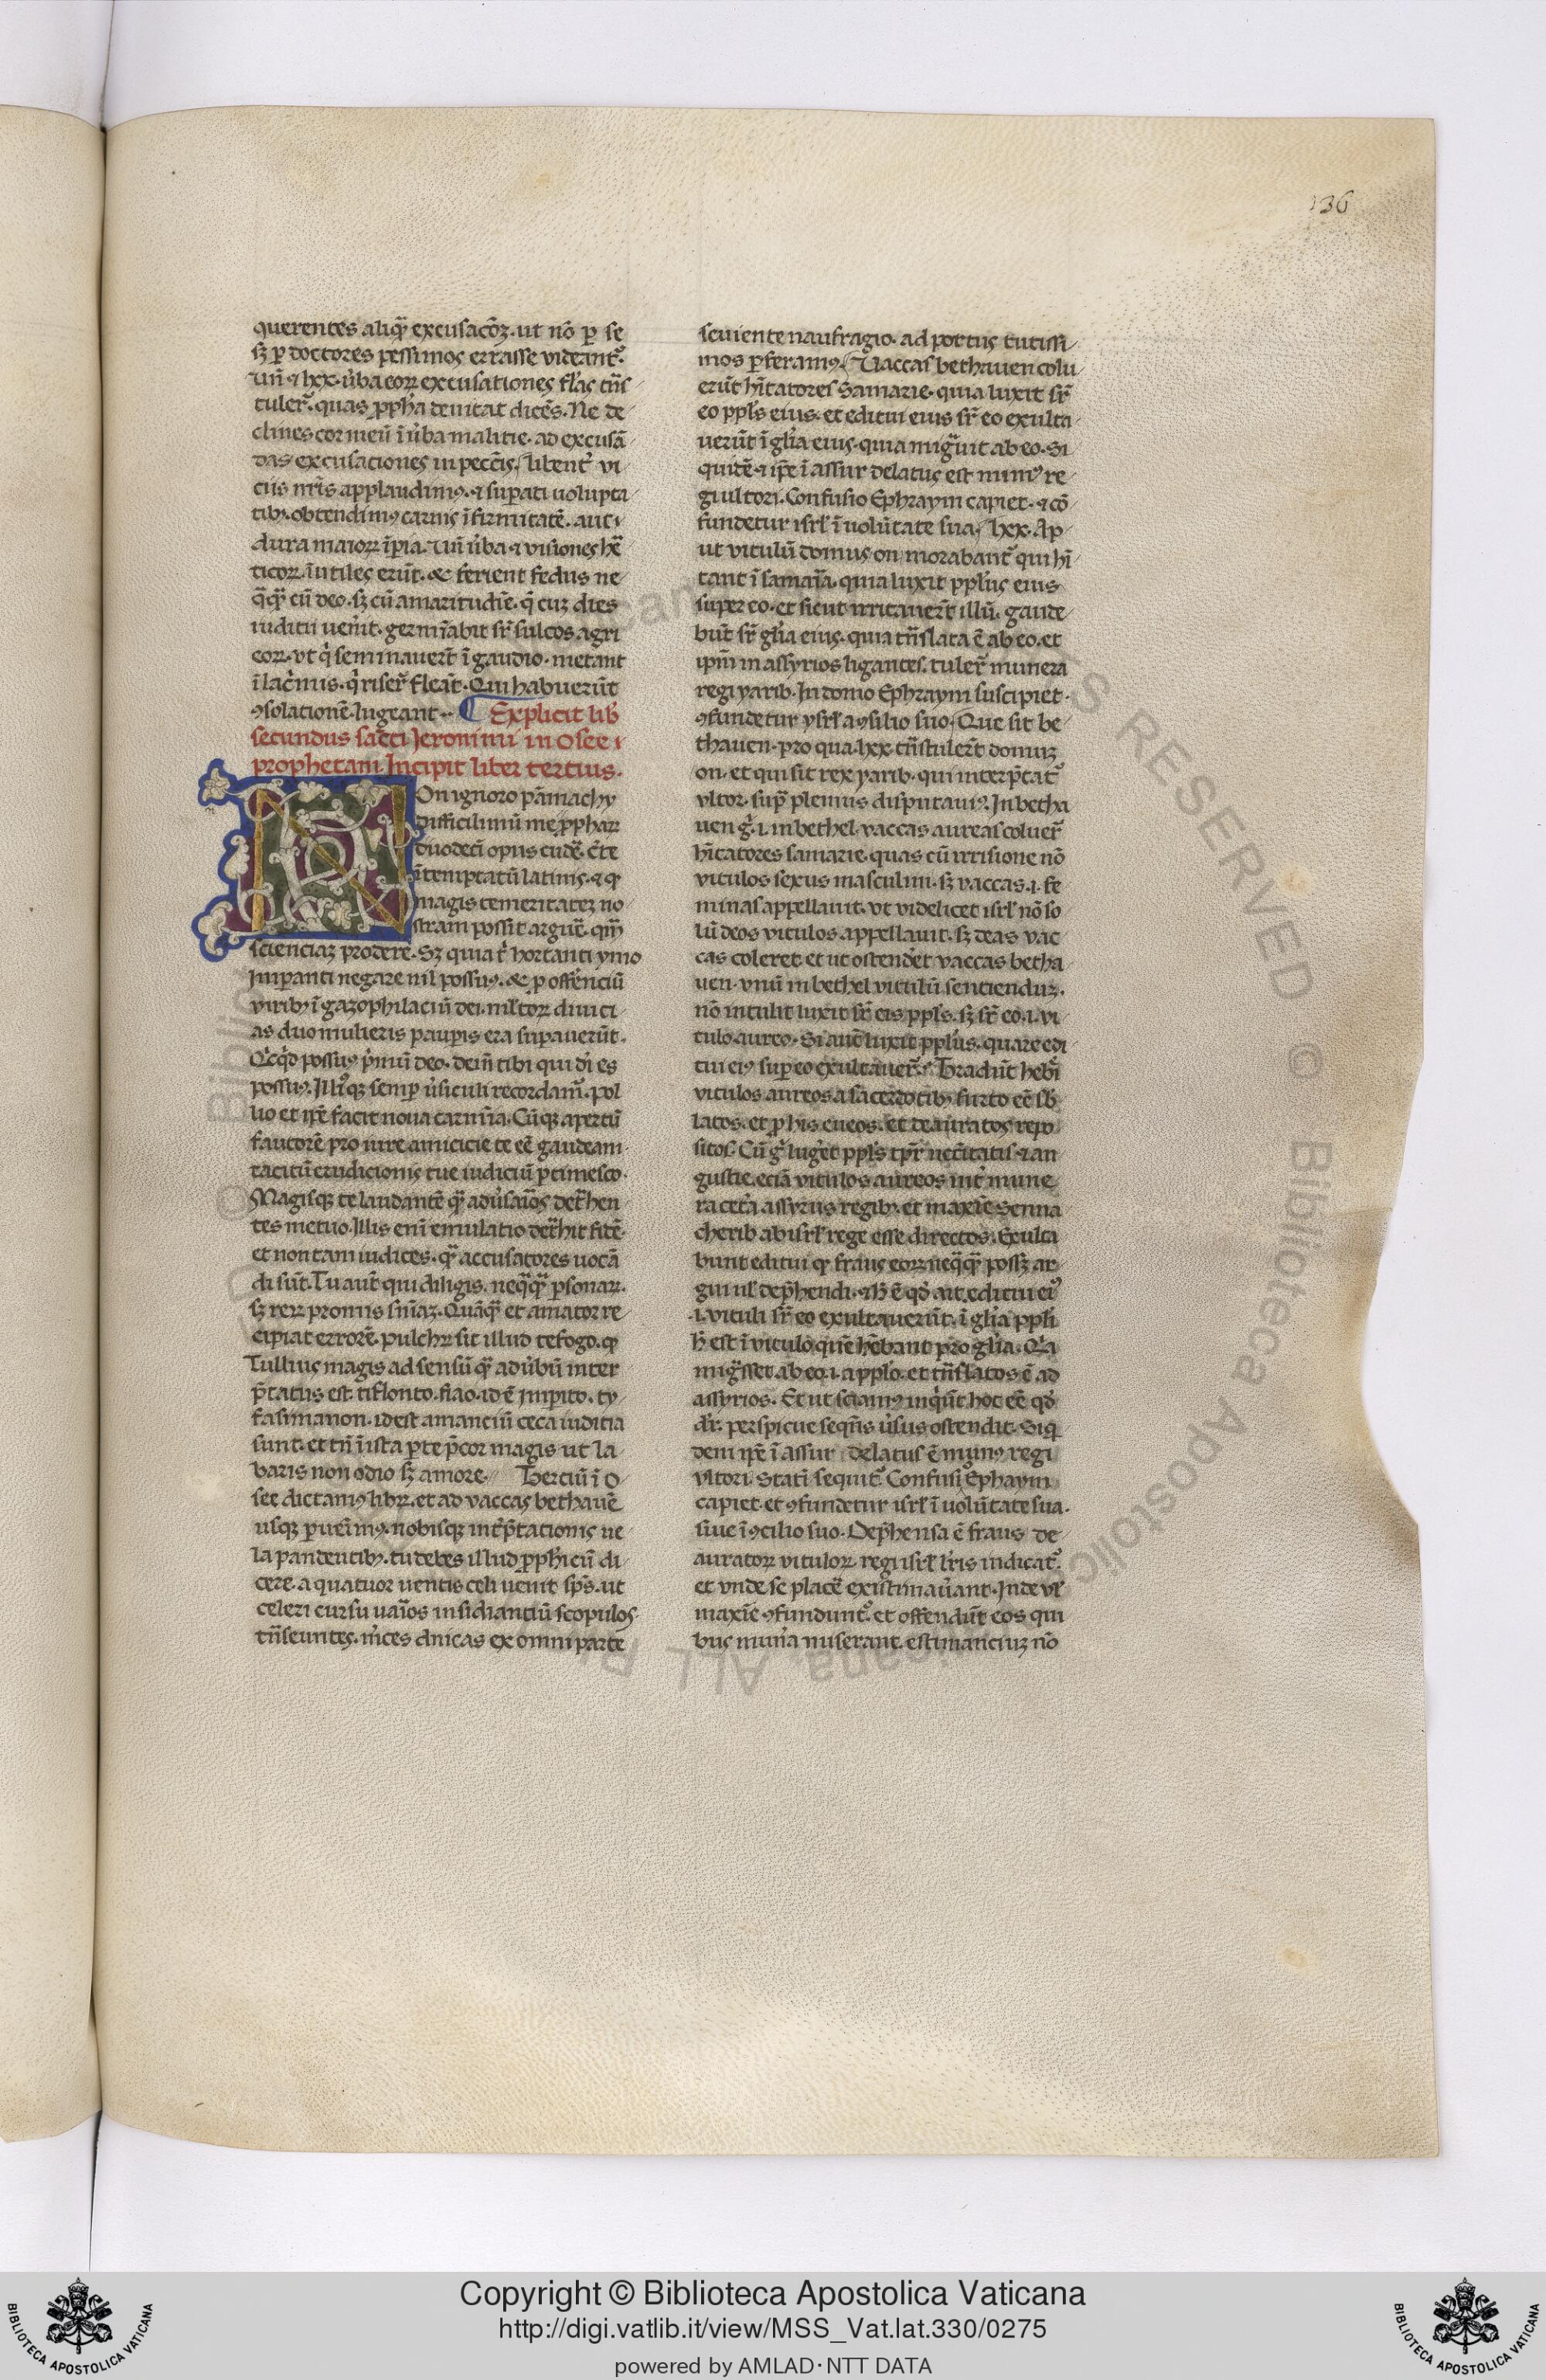 136
querentes aliq̃ excusacõꝫ. ut nõ ꝑ se
sꝫ ꝑ doctores pessimos errasse videant᷑.
Uñ ⁊ lxx. ũba eoꝝ excusationes fl̃as tñs
tuler̃. quas ꝓph̃a deuitat dicẽs. Ne de
clines cor meũ ĩ ũba malitie. ad excusã
das excusaciones in pecc̃is. libent̃ vi
ciis nr̃is applaudimꝰ. ⁊ suꝑati uolupta
tibꝫ. obtendimꝰ carnis ĩfirmitatẽ. aut
dura maioꝝ ĩpia. Uñ ũba ⁊ visiones hẽ
ticoꝝ. ĩutiles erũt. & ferient fedus ne
q̃q̃ cũ deo. sꝫ cũ amaritudĩe. q̃ cuꝫ dies
iuditii uen̾it. germĩabit sr̃ sulcos agri
eoꝝ. vt q̾ seminauer̃t ĩ gaudio. metant
ĩ lac̾mis. q̾ riser̃ fleãt. Qui habuerũt
ꝯsolationẽ. lugeant. ¶ Explicit lib̾
secundus sãcti Jeronimi in Osee
prophetam. Incipit liber tertius.
NOn ignoro pãmachy
difficilimũ me ꝓphaꝝ
duodecĩ opus cudẽ. c̃te
ĩtemptatũ latinis. ⁊ qꝫ
magis temeritateꝫ no
stram possit arguẽ. qm̃
scienciaꝫ prodere. Sꝫ quia t̾ hortanti ymo
Imꝑanti negare nil possũ. & ꝓ offẽnciũ
viribꝫ ĩ gazophilaciũ dei. ml̃toꝝ diuici
as duo mulieris pauꝑis era suꝑauerũt.
Qͥcqͥd possũ p̾mũ deo. deĩ tibi qui di es
possũ. Illiꝰqꝫ semꝑ ũsiculi recordam̃. pol
lio et ip̃e facit noua carmĩa. Cũqꝫ apertũ
fautorẽ pro iure amicicie te eẽ gaudeam
tacitũ erudicionis tue iudiciũ ꝑtimesco.
Magisqꝫ te laudantẽ q̃ adũsaĩos det̾hen
tes metuo. Illis enĩ emulatio det̾hit fitẽ.
et non tam iudices. q̃ accusatores uocã
di sũt. Tu aut̃ qui diligis. neq̃q̃ ꝑsonaꝝ.
sꝫ reꝝ promis sñiaꝫ. Quãq̃ et amator re
cipiat errorẽ. pulchꝝ sit illud tefogo. qꝫ
Tullius magis ad sensũ q̃ ad ũbũ inter
p̃tatus est tiflonto. fiao. id ẽ Imꝑito. ty
fasimanon. id est amanciũ ceca iuditia
sunt. et tñ ĩ ista ꝑte p̃cor magis ut la
baris non odio sꝫ amore. Terciũ ĩ O
see dictamꝰ libꝝ. et ad vaccas bethauẽ
usqꝫ ꝑuenĩmꝰ. nobisqꝫ int̾p̃tationis ue
la pandentibꝫ. tu debes illud ꝓph̾icũ di
cere. a quatuor uentis celi uenit sp̃s. ut
celeri cursu uaĩos insidianciũ scopulos
tñseuntes. m̾ces dñicas ex omni parte
seuiente naufragio. ad portus tutissi
mos ꝑferamꝰ. Uaccas bethauen colu
erũt hĩtatores Samarie. quia luxit sr̃
eo ppl̾s eius. et editui eius sr̃ eo exulta
uerũt ĩ gl̾ia eius. quia mig̃uit ab eo. Si
quidẽ. ⁊ ip̃e ĩ assur delatus est munꝰ re
gi ultori. Confusio Ephraym capiet. ⁊ cõ
fundetur isr̃l ĩ uolũtate sua. lxx. Ap
ut vitulũ domus on morabant᷑ qui hĩ
tant ĩ samaĩa. quia luxit ppl̾us eius
super eo. et sicut irritauer̃t illũ. gaude
bũt sr̃ gl̾ia eius. quia tñslata ẽ ab eo. et
ipm̃ in assyrios ligantes. tuler̃ munera
regi yarib. In domo Ephraym suscipiet.
ꝯfundetur ysr̃l a ꝯsilio suo. Que sit be
thauen. pro qua lxx. tñstuler̃t domuꝫ
on. et qui sit rex yarib. qui interp̃tat᷑
vltor. sup̃ plenius disputauiꝰ. In betha
uen g̾. i. in bethel vaccas aureas coluer̃
hĩtatores samarie. quas cũ irrisione nõ
vitulos sexus masculini. sꝫ vaccas. i. fe
minas appellauit. vt videlicet isr̃l nõ so
lũ deos vitulos appellauit. sꝫ deas vac
cas coleret. et ut ostendẽt vaccas betha
uen. vnũ in bethel vitulũ sentienduꝫ.
nõ intulit luxit sr̃ eis ppl̾s. sꝫ sr̃ eo. i. vi
tulo aureo. Si aut̃ luxit ppl̾us. quare edi
tui eiꝰ suꝑ eo exultauer̃. Tradũt hebr̃i
vitulos aureos a sacerdotibꝫ furto eẽ sb̾
latos. et ꝓ his eneos. et deauratos repo
sitos. Cũ g̾ luget ppl̾s tp̃r nec̾itatis ⁊ an
gustie. eciã vitulos aureos int̾ mune
ra cet̾a assyriis regibꝫ. et maxĩe Senna
cherib ab isr̃l rege esse directos. Exulta
bunt editui qꝫ fraus eoꝝ neq̃q̃ possꝫ ar
gui ul̾ dep̃hendi. ⁊ h̾ ẽ qd̾ ait. editui eiꝰ
.i. vituli sr̃ eo exultauerũt. ĩ gl̾ia ppl̾i
h̾ est ĩ vitulo quẽ hẽbant pro gl̾ia. Q̾a
mig̃sset ab eo. i. a ppl̾o. et tñslatos ẽ ad
assyrios. Et ut sciamꝰ inq̾ũt hoc eẽ qd̾
dr̃. perspicue seqñs ũsus ostendit. Siq
dem ip̃e ĩ assur delatus ẽ munꝰ regi
vltori. Statĩ sequit᷑. Confusi᷑ Ephaym
capiet. et ꝯfundetur isr̃l ĩ uolũtate sua.
siue ĩ ꝯcilio suo. Dep̃hensa ẽ fraus de
auratoꝝ vituloꝝ. regi isr̃l lr̃is indicat᷑.
et vnde se placẽ existimaũant. Inde ul̾
maxĩe ꝯfundunt᷑. et offendũt eos qui
bus mun̾a miserant. estimanciuꝫ nõ
Copyright © Biblioteca Apostolica Vaticana
http://digi.vatlib.it/view/MSS_Vat.lat.330/0275
powered by AMLAD·NTT DATA